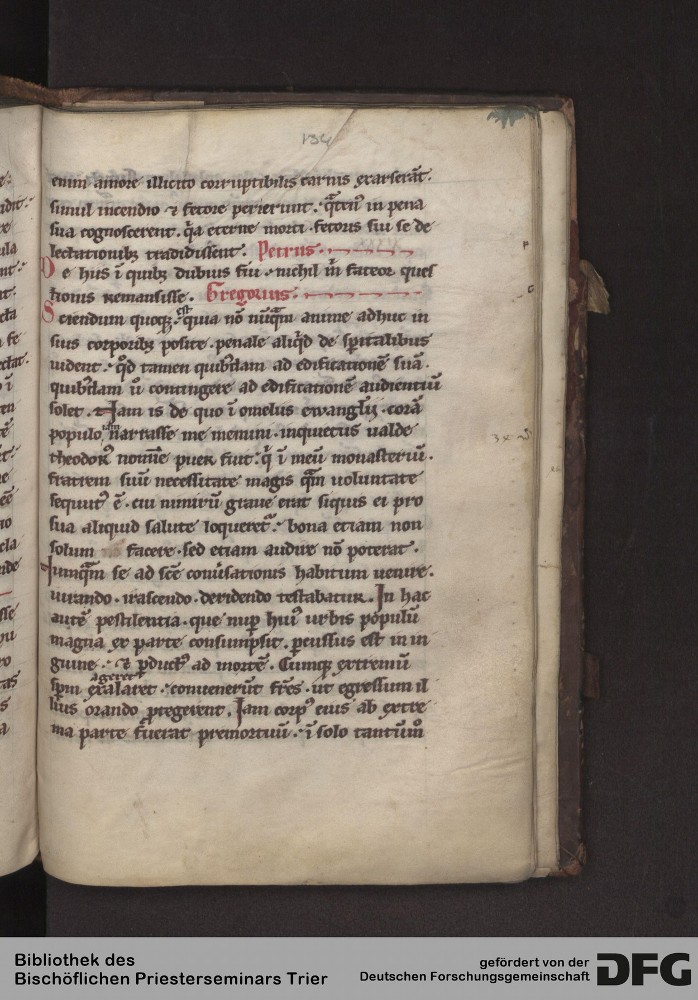 134
enim amore illicito corruptibilis carnis exarserāt.
simul incendio ⁊ fetore perierunt. q̄tenꝰ in pena
sua cognoscerent. q̓a eterne morti fetoris sui se de
lectationibꝫ tradidissent. Petrus.
De hiis ī quibꝫ dubius fui. nichil m̄ fateor ques
tionis remansisse. Gregorius.
Sciendum quoqꝫ est quia nō nūq̄m anime adhuc in
suis corporibꝫ posite. penale aliq̓d de spiritalibus
uident. q̓d tamen quibꝰdam ad edificationē suā.
quibꝰdam ū contingere ad edificationē audientiū
solet. ⁊ Iam is de quo ī omelus ewanglij. corā
populo iam narrasse me memini. inquietus ualde
theodorꝰ nomīe puer fuit. q̓ ī meū monasteriū.
fratrem suū necessitate magis q̄m uoluntate
sequutꝰ ē. cui nimirū graue erat siquis ei pro
sua aliquid salute loqueretꝰ. bona etiam non
solum facere. sed etiam audire nō poterat.
Numq̄m se ad scē conūsationis habitum uenire.
iurando. irascendo. deridendo testabatur. In hac
autē pestilentia. que nuꝑ huiꝰ urbis populū
magna ex parte consumpsit. ꝑcussus est in in
guine. ⁊ ꝑductꝰ ad mortē. Cumqꝫ extremū
ageret
spm exalaret. conuenerūt fr̄es. ut egressum il
lius orando ꝓtegerent. Iam corpꝰ eius ab extre
ma parte fuerat premortuū. ī solo tantūm̊
P
G
Bibliothek des
Bischöflichen Priesterseminars Trier
gefördert von der
Deutschen Forschungsgemeinschaft
DFG